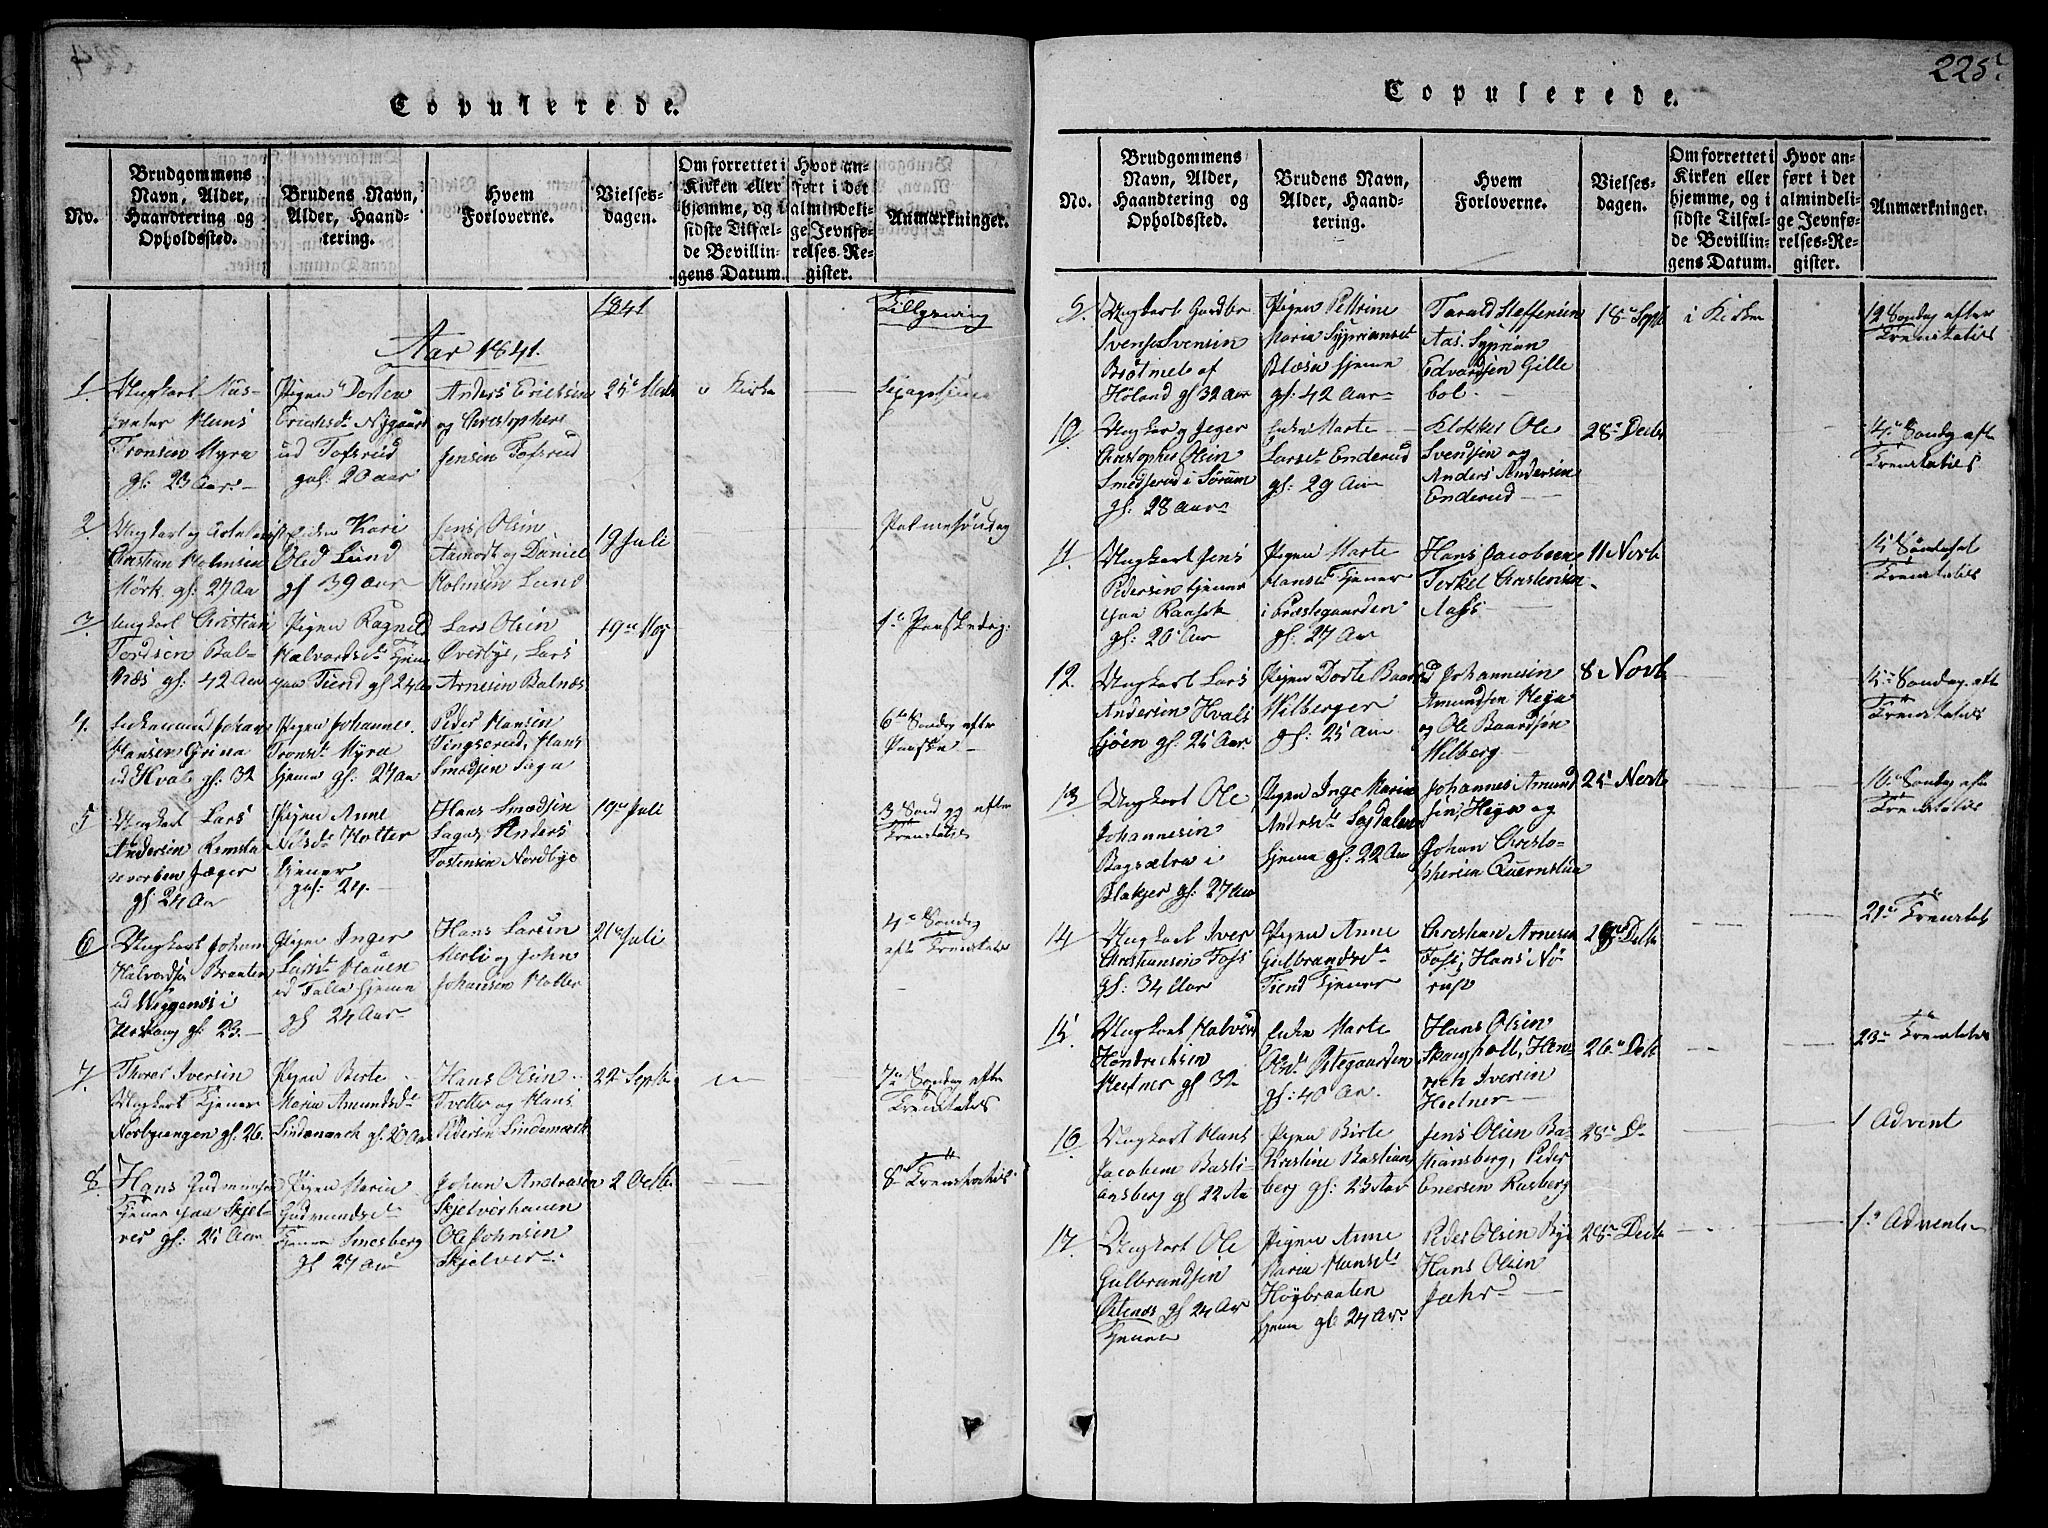 Copulerede.
No.
Brudgommens
Navn, Alder,
Haandtering og
Opholdssted.
Brudens Navn,
Alder, Haand-
tering.
Hvem
Forloverne.
Vielses-
dagen.
Om forrettet i
Kirken eller
hjemme, og i
sidste Tilfæl-
de Bevillin-
gens Datum.
Hvor an-
ført i det
almindeli-
ge Jevnfø-
relses-Re-
gister.
Anmærkninger.
Aar 1841.
1841
Tillysning
1.
Ungkarl Mus-
Hans
Tronsen Myra
gl: 23 Aar
Pigen Dorten
Erichsdr Nygaard
ud Tofsrud
gl: 20 aar
Anders Erichsen
og Christopher
Jensen Tofsrud
25
Kirke
2
Ungkarl og
Christian Holmsen
Mörk. gl: 27 Aar
Enken Kari
Olsd Lund
gl 39 aar
Jens Olsen
Aamodt og Daniel
Holmsen Lund
19 Juli
Palmesöndag
3.
Ungkarl Christian
Tordsen Bal-
næs gl: 42 Aar
Pigen Ragnild
Halvordsdr tjener
paa Tiend gl 24 Aar
Lars Olsen
Överbye, Lars
Arnesen Balnæs
19
1ste Paaskedag:
4.
Enkemand Johan
Hansen Grina
ud Hval gl: 32
Pigen Johanne
Tronsdr Myra
hjemme gl: 27 Aar
Peder Hansen
Tingsrud, Hans
Smedsen Saga
6te Sondag efter
Paaske
5
Ungkarl Lars
Andersen
Jæger
gl 24 Aar
Pigen Anne
Nilsdr Kotter
tjener
gl: 24.
Hans Smedsen
Saga, Anders
Tostensen Nordbye
19 Juli
3 Sondag efter
Trenitatis
6
Ungkarl Johan
Halvordsen Braaten
ud Væggenæs i
Urskoug gl: 23.
Pigen Inger
Larsdr Hauen
ud Falla hjemme
gl 24 Aar
Hans Larsen
Merli og John
Johansen Kotter
21 Juli
4 Sondag
eft Trenitatis
7.
Thorer Iversen
Ungkarl tjener
gl: 26.
Pigen Birte
Maria Amundsdr
Lindemarck gl. 20 Aar
Hans Olsen
Tvetter og Hans
Pedersen Lindemark
22 Septb
7 Sondag efter
Trenitatis
8.
Hans Gudmundsen
tjener paa Skjel-
ver gl: 25 Aar
Pigen Maria
Gudmundsdr
tjener Smesberg
gl 27 Aar
Johan Andreasen
Skjelverhauen
Ole Johnsen
Skjelver
2 Octb.
8 Trenitatis
225
Copulerede.
No.
Brudgommens
Navn, Alder,
Haandtering og
Opholdssted.
Brudens Navn,
Alder, Haand-
tering.
Hvem
Forloverne.
Vielses-
dagen.
Om forrettet i
Kirken eller
hjemme, og i
sidste Tilfæl-
de Bevillin-
gens Datum.
Hvor an-
ført i det
almindeli-
ge Jevnfø-
relses-Re-
gister.
Anmærkninger.
9.
Ungkarl Gaardbr
Svend Svensen
af
Höland gl 32 Aar
Pigen Pettrine
Maria Syprianset
hjemme
gl: 42 Aar
Tarald Steffensen
Aas. Syprian
Edvardsen Gille
bol.
18 Septb
i Kirken
12 Sondag efter
Trenitatis
10.
Ungkarl og Jeger
Christopher Olsen
Smedserud i Sörum
gl: 28 Aar
Enken Marte
Larsdr Enderud
gl: 29 Aar
Klokker Ole
Svendsen og
Anders Andersen
Enderud
28 Decbr
4 Sondag eft
Trenitatis
11.
Ungkarl Jens
Pedersen tjener
paa Raasok
gl: 20 Aar
Pigen Marte
Hansdr tjener
i Præstegaarden
gl: 27 Aar
Hans Jacobsen
Terkel Christensen
Aass
11 Novb
15 Söndag eft
Trenitatis
12.
Ungkarl Lars
Andersen Hvals
sjöen gl: 25 Aar
Pigen Dorte Baardsd
Wilberger
gl: 25 Aar
Johannesen
Amundsen Heja
og Ole Baardsen
Wilberg
8 Novb
15 Sondag eft
Trenitatis
13
Ungkarl Ole
Johannesen
Bagsætra i
Blakjer gl: 27 Aar
Pigen Inge Maria
Andrsdr Sagdalen
hjemme gl: 22 Aar
Johannes Amund
sen, Heja og
Johan Christo-
phersen Quernstua
25 Novb
16 Sondag eft
Trenitatis
14
Ungkarl Iver
Christiansen Foss
gl: 34 Aar
Pigen Anne
Gulbrandsdr
Tiend tjener
Christian Arnesen
Foss, Hans Nö-
rup
Decbr
21 Trenitat
15.
Ungkarl Halvor
Hendrichsen
Heitner gl 32
Enken Marte
Olsdr Prstegaarden
gl: 40 Aar.
Hans Olsen
Skougholt, Hen-
rich Iversen
Hetner
26 Decbr
23 Trenitatis
16
Ungkarl Hans
Jacobsen Basti-
ansberg gl 22 Aar
Pigen Birte
Kristine Bastians
berg gl: 23 Aar
Jens Olsen Ba-
stiansberg, Peder
Enersen Rusberg
28 D
1 Advent
17.
Ungkarl Ole
Gulbrandsen
gl 24 Aar
tjener
Pigen Anne
Maria Hansdr
Höybraaten
hjemme gl 24 Aar
Peder Olsen Bye
Hans Olsen
Jahr
28 Decbr
1 Advent